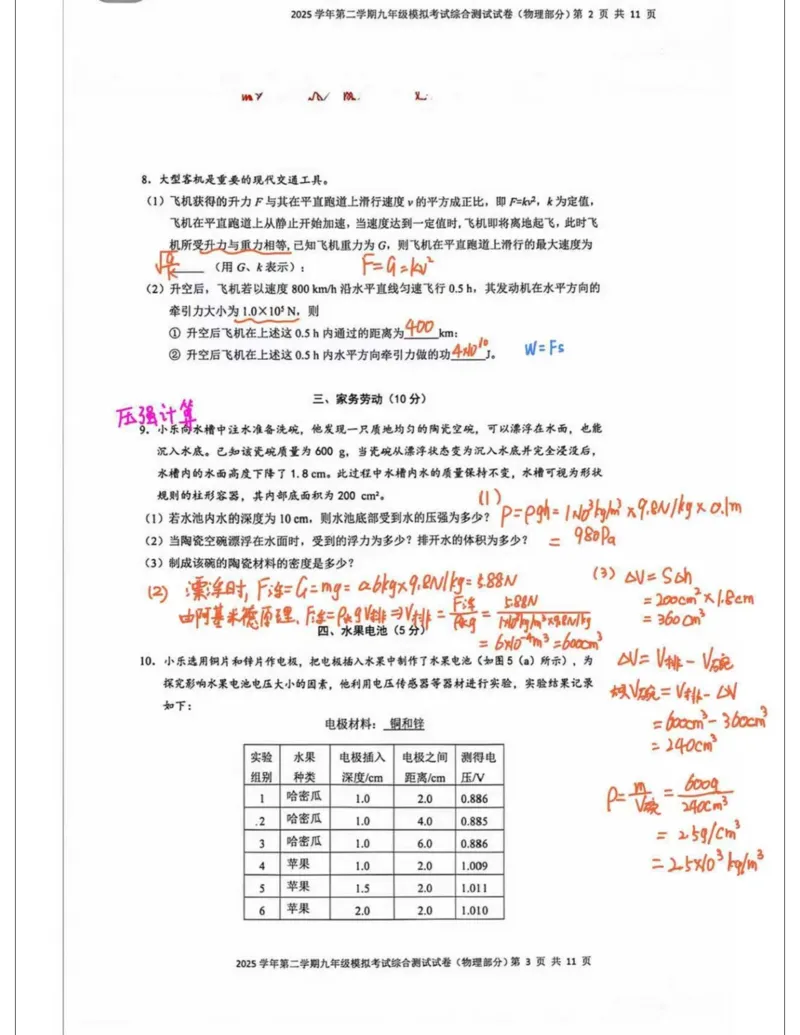 2025 学年第二学期九年级模拟考试综合测试试卷(物理部分)第 2 页 共 11 页
8. 大型客机是重要的现代交通工具。
(1)飞机获得的升力 F 与其在平直跑道上滑行速度 v 的平方成正比,即 F=kv²,k 为定值,
飞机在平直跑道上从静止开始加速,当速度达到一定值时,飞机即将离地起飞,此时飞
机所受升力与重力相等,已知飞机重力为 G,则飞机在平直跑道上滑行的最大速度为
√(G/k) (用 G、k 表示);
F=G=kv²
(2)升空后,飞机若以速度 800 km/h 沿水平直线匀速飞行 0.5 h,其发动机在水平方向的
牵引力大小为 1.0×10⁵ N,则
① 升空后飞机在上述这 0.5 h 内通过的距离为 400 km;
② 升空后飞机在上述这 0.5 h 内水平方向牵引力做的功 4×10¹⁰ J。
W=Fs
三、家务劳动(10 分)
压强计算
9. 小乐向水槽中注水准备洗碗,他发现一只质地均匀的陶瓷空碗,可以漂浮在水面,也能
沉入水底。已知该瓷碗质量为 600 g,当瓷碗从漂浮状态变为沉入水底并完全浸没后,
水槽内的水面高度下降了 1.8 cm。此过程中水槽内水的质量保持不变,水槽可视为形状
规则的柱形容器,其内部底面积为 200 cm²。
(1)若水池内水的深度为 10 cm,则水池底部受到水的压强为多少?
(2)当陶瓷空碗漂浮在水面时,受到的浮力为多少?排开水的体积为多少?
(3)制成该碗的陶瓷材料的密度是多少?
(1) p=ρgh=1×10³kg/m³×9.8N/kg×0.1m
= 980Pa
(2) 漂浮时, F浮=G=mg=0.6kg×9.8N/kg=5.88N
由阿基米德原理、F浮=ρ水gV排⇒V排=F浮/ρ水g=5.88N/1×10³kg/m³×9.8N/kg
= 6×10⁻⁴m³=600cm³
(3) ΔV=SΔh
=200cm²×1.8cm
=360cm³
ΔV=V排-V碗
故V碗=V排-ΔV
=600cm³-360cm³
=240cm³
ρ=m/V碗=600g/240cm³
=2.5g/cm³
=2.5×10³kg/m³
四、水果电池(5 分)
10. 小乐选用铜片和锌片作电极,把电极插入水果中制作了水果电池(如图 5(a)所示),为
探究影响水果电池电压大小的因素,他利用电压传感器等器材进行实验,实验结果记录
如下:
电极材料: 铜和锌
实验组别 水果种类 电极插入深度/cm 电极之间距离/cm 测得电压/V
1 哈密瓜 1.0 2.0 0.886
2 哈密瓜 1.0 4.0 0.885
3 哈密瓜 1.0 6.0 0.886
4 苹果 1.0 2.0 1.009
5 苹果 1.5 2.0 1.011
6 苹果 2.0 2.0 1.010
2025 学年第二学期九年级模拟考试综合测试试卷(物理部分)第 3 页 共 11 页